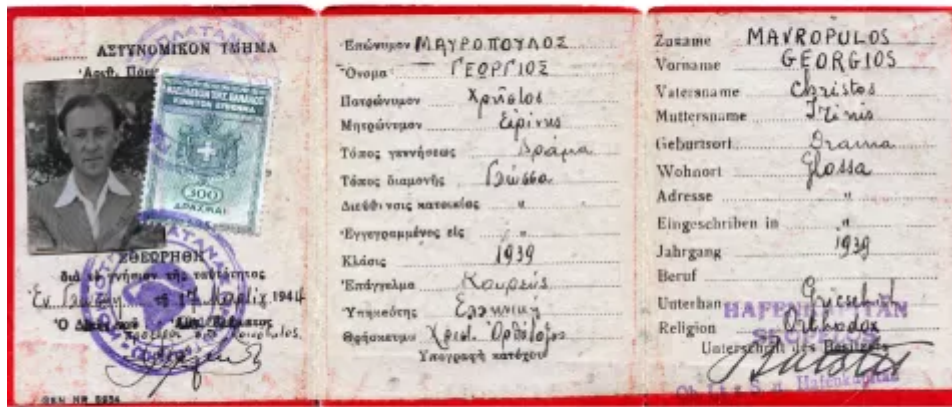 ΠΛΑΤΑΝ
ΑΣΤΥΝΟΜΙΚΟΝ ΤΜΗΜΑ
ΒΑΣΙΛΕΙΟΝ ΤΗΣ ΕΛΛΑΔΟΣ
300
ΔΡΑΧΜΑΙ
ΕΘΕΩΡΗΘΗ
διά τό γνήσιον τῆς ταυτότητος
1944
GEN NR 8934
Ἐπώνυμον ΜΑΥΡΟΠΟΥΛΟΣ
Ὄνομα ΓΕΩΡΓΙΟΣ
Πατρώνυμον Χρῆστος
Μητρώνυμον Εἰρίνης
Τόπος γεννήσεως Δράμα
Τόπος διαμονῆς Γλώσσα
Διεύθυνσις κατοικίας "
Ἐγγεγραμμένος εἰς "
Κλάσις 1939
Ἐπάγγελμα Κουρεύς
Ὑπηκοότης Ἑλληνική
Θρήσκευμα Χριστ. Ὀρθόδοξος
Ὑπογραφή κατόχου
Zuname MAVROPULOS
Vorname GEORGIOS
Vatersname Christos
Muttersname Irinis
Geburtsort Drama
Wohnort Glossa
Adresse "
Eingeschriben in "
Jahrgang 1939
Beruf
Unterhan Griechisch
HAFENKAPITÄN
Religion Orthodox
Unterschrift des Besitzers
Hafenkapitän